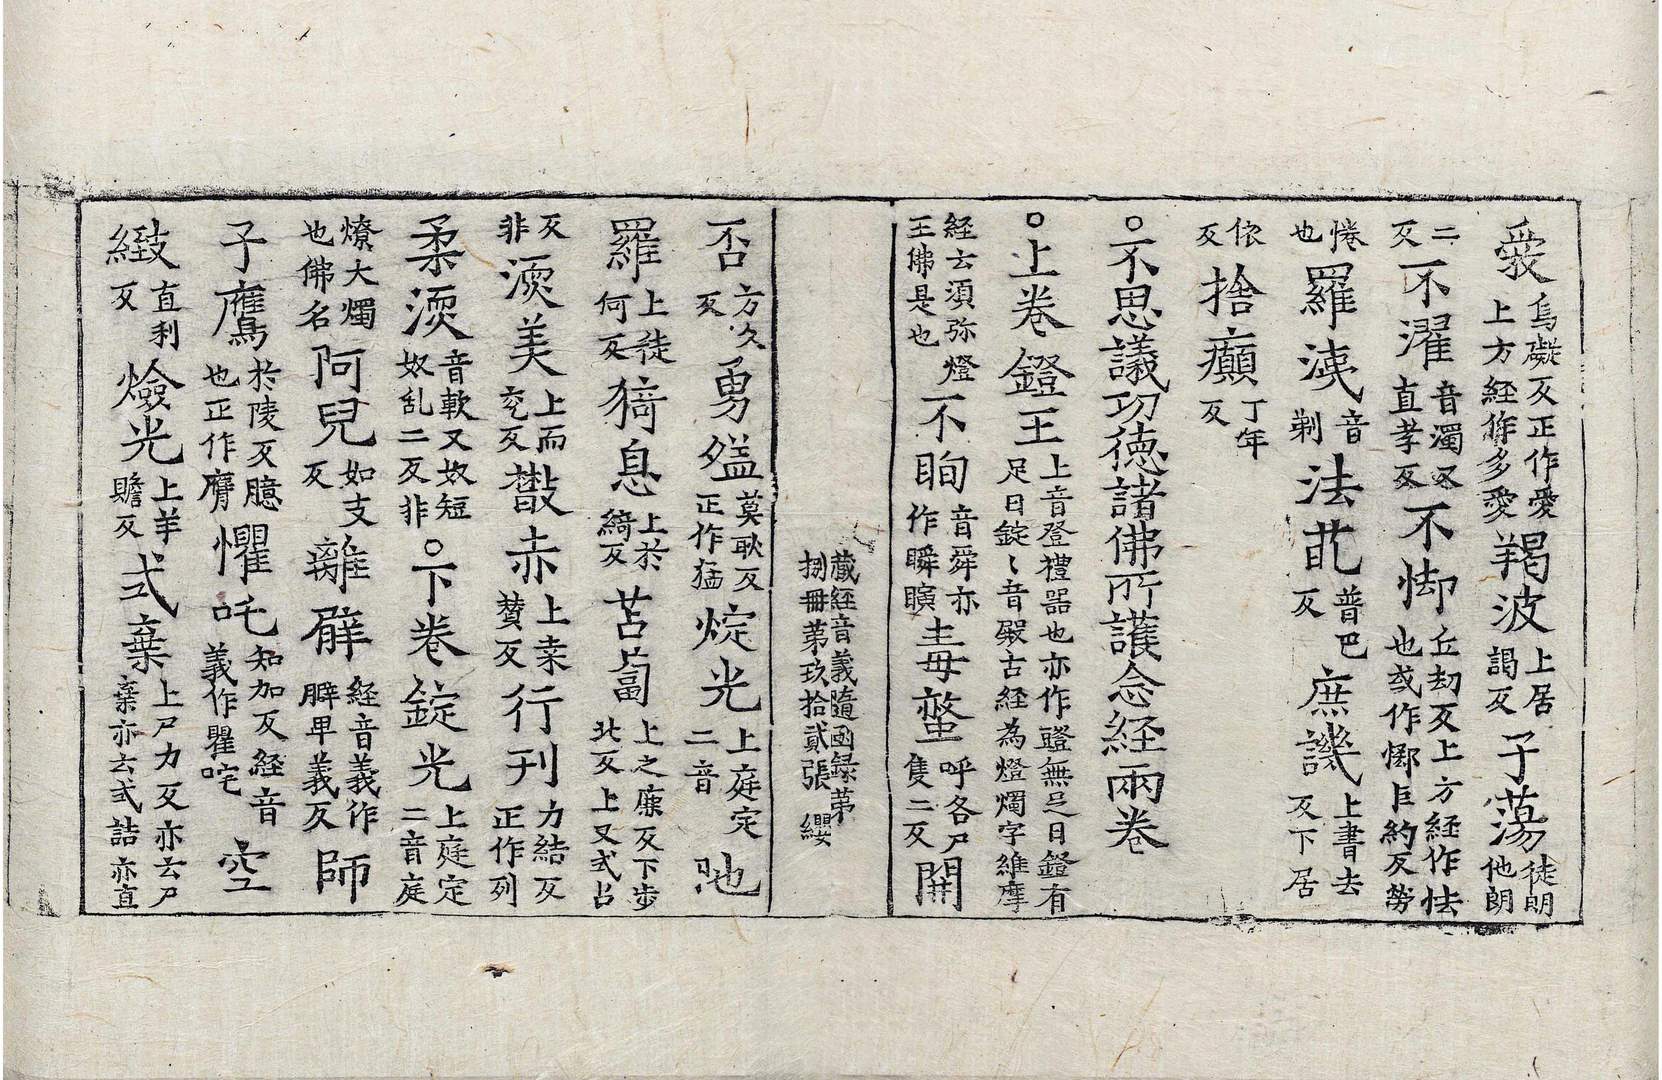 愛烏礙反正作愛上方経作多愛羯波上居謁反子蕩徒朗他朗
二反不濯音濁又直孝反不怯丘刧反上方経作怯也或作㥘臣約反勞
惓也羅洟音剃法㧊普巴反庶譏上書去反下居
依反捨癲丁年反
○不思議功徳諸佛所護念経兩卷
○上卷鐙王上音登禮噐也亦作䔲無足曰鐙有足曰錠〻音殿古経為燈燭字維摩
経云湏弥燈王佛是也不眴音舜亦作瞬瞚毒螫呼各尸隻二反開
藏経音義隨函録苐捌冊苐玖拾貳張 纓
否方久反勇㿻莫耿反正作猛㝎光上庭定二音㐌
羅上徒何反猗息上於綺反苫蔔上之廉反下步北反上又式占
反非渜美上而兗反㪚赤上桒賛反行刋力結反正作列
柔渜音軟又奴短奴乱二反非○下卷錠光上庭定二音庭
燎大燭也佛名阿兒如支反離臂経音義作䏶卑義反師
子鷹於陵反臆也正作膺懼吒知加反経音義作瞿咤空
緻直利反㷿光上羊贍反弌棄上尸力反亦云尸棄亦云式詰亦直